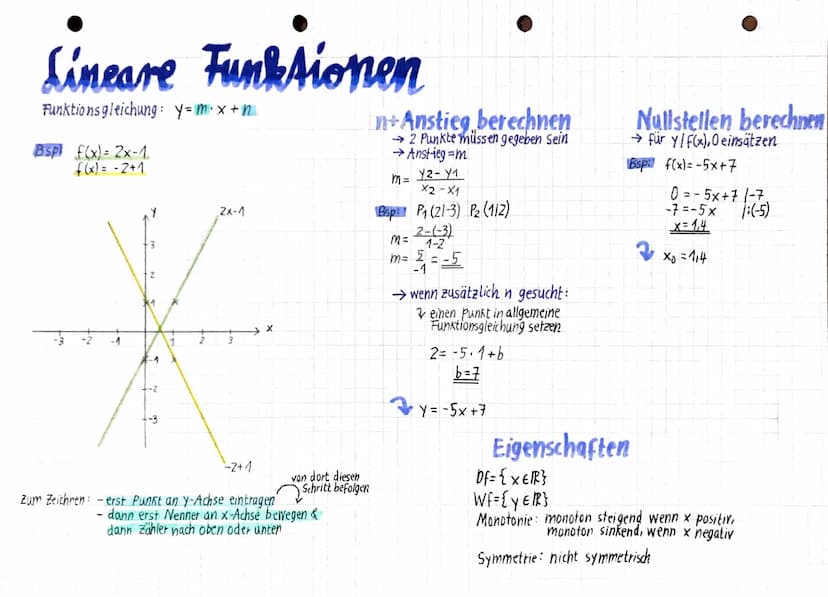 Lineare Funktionen
Funktionsgleichung: y=m·x+n
Bsp: f(x)=2x-1
f(x)=-2+1
y
2x-1
3
2
1
x
-3 -2 -1 1 2 3
-1
-2
-3
-2+1
Zum Zeichnen: - erst Punkt an y-Achse eintragen
- dann erst Nenner an x-Achse bewegen &
dann Zähler nach oben oder unten
von dort diesen
Schritt befolgen
n+Anstieg berechnen
→ 2 Punkte müssen gegeben sein
→ Anstieg=m
m= y2-y1
x2-x1
Bsp: P1(2/-3) P2(1/2)
m= 2-(-3)
1-2
m= 5 = -5
-1
→ wenn zusätzlich n gesucht:
↴ einen Punkt in allgemeine
Funktionsgleichung setzen
2= -5·1+b
b=7
y=-5x+7
Nullstellen berechnen
→ für y/f(x), 0 einsätzen
Bsp: f(x)=-5x+7
0=-5x+7 /-7
-7=-5x /:(-5)
x=1,4
x0=1,4
Eigenschaften
Df={x∈ℝ}
Wf={y∈ℝ}
Monotonie: monoton steigend wenn x positiv,
monoton sinkend, wenn x negativ
Symmetrie: nicht symmetrisch